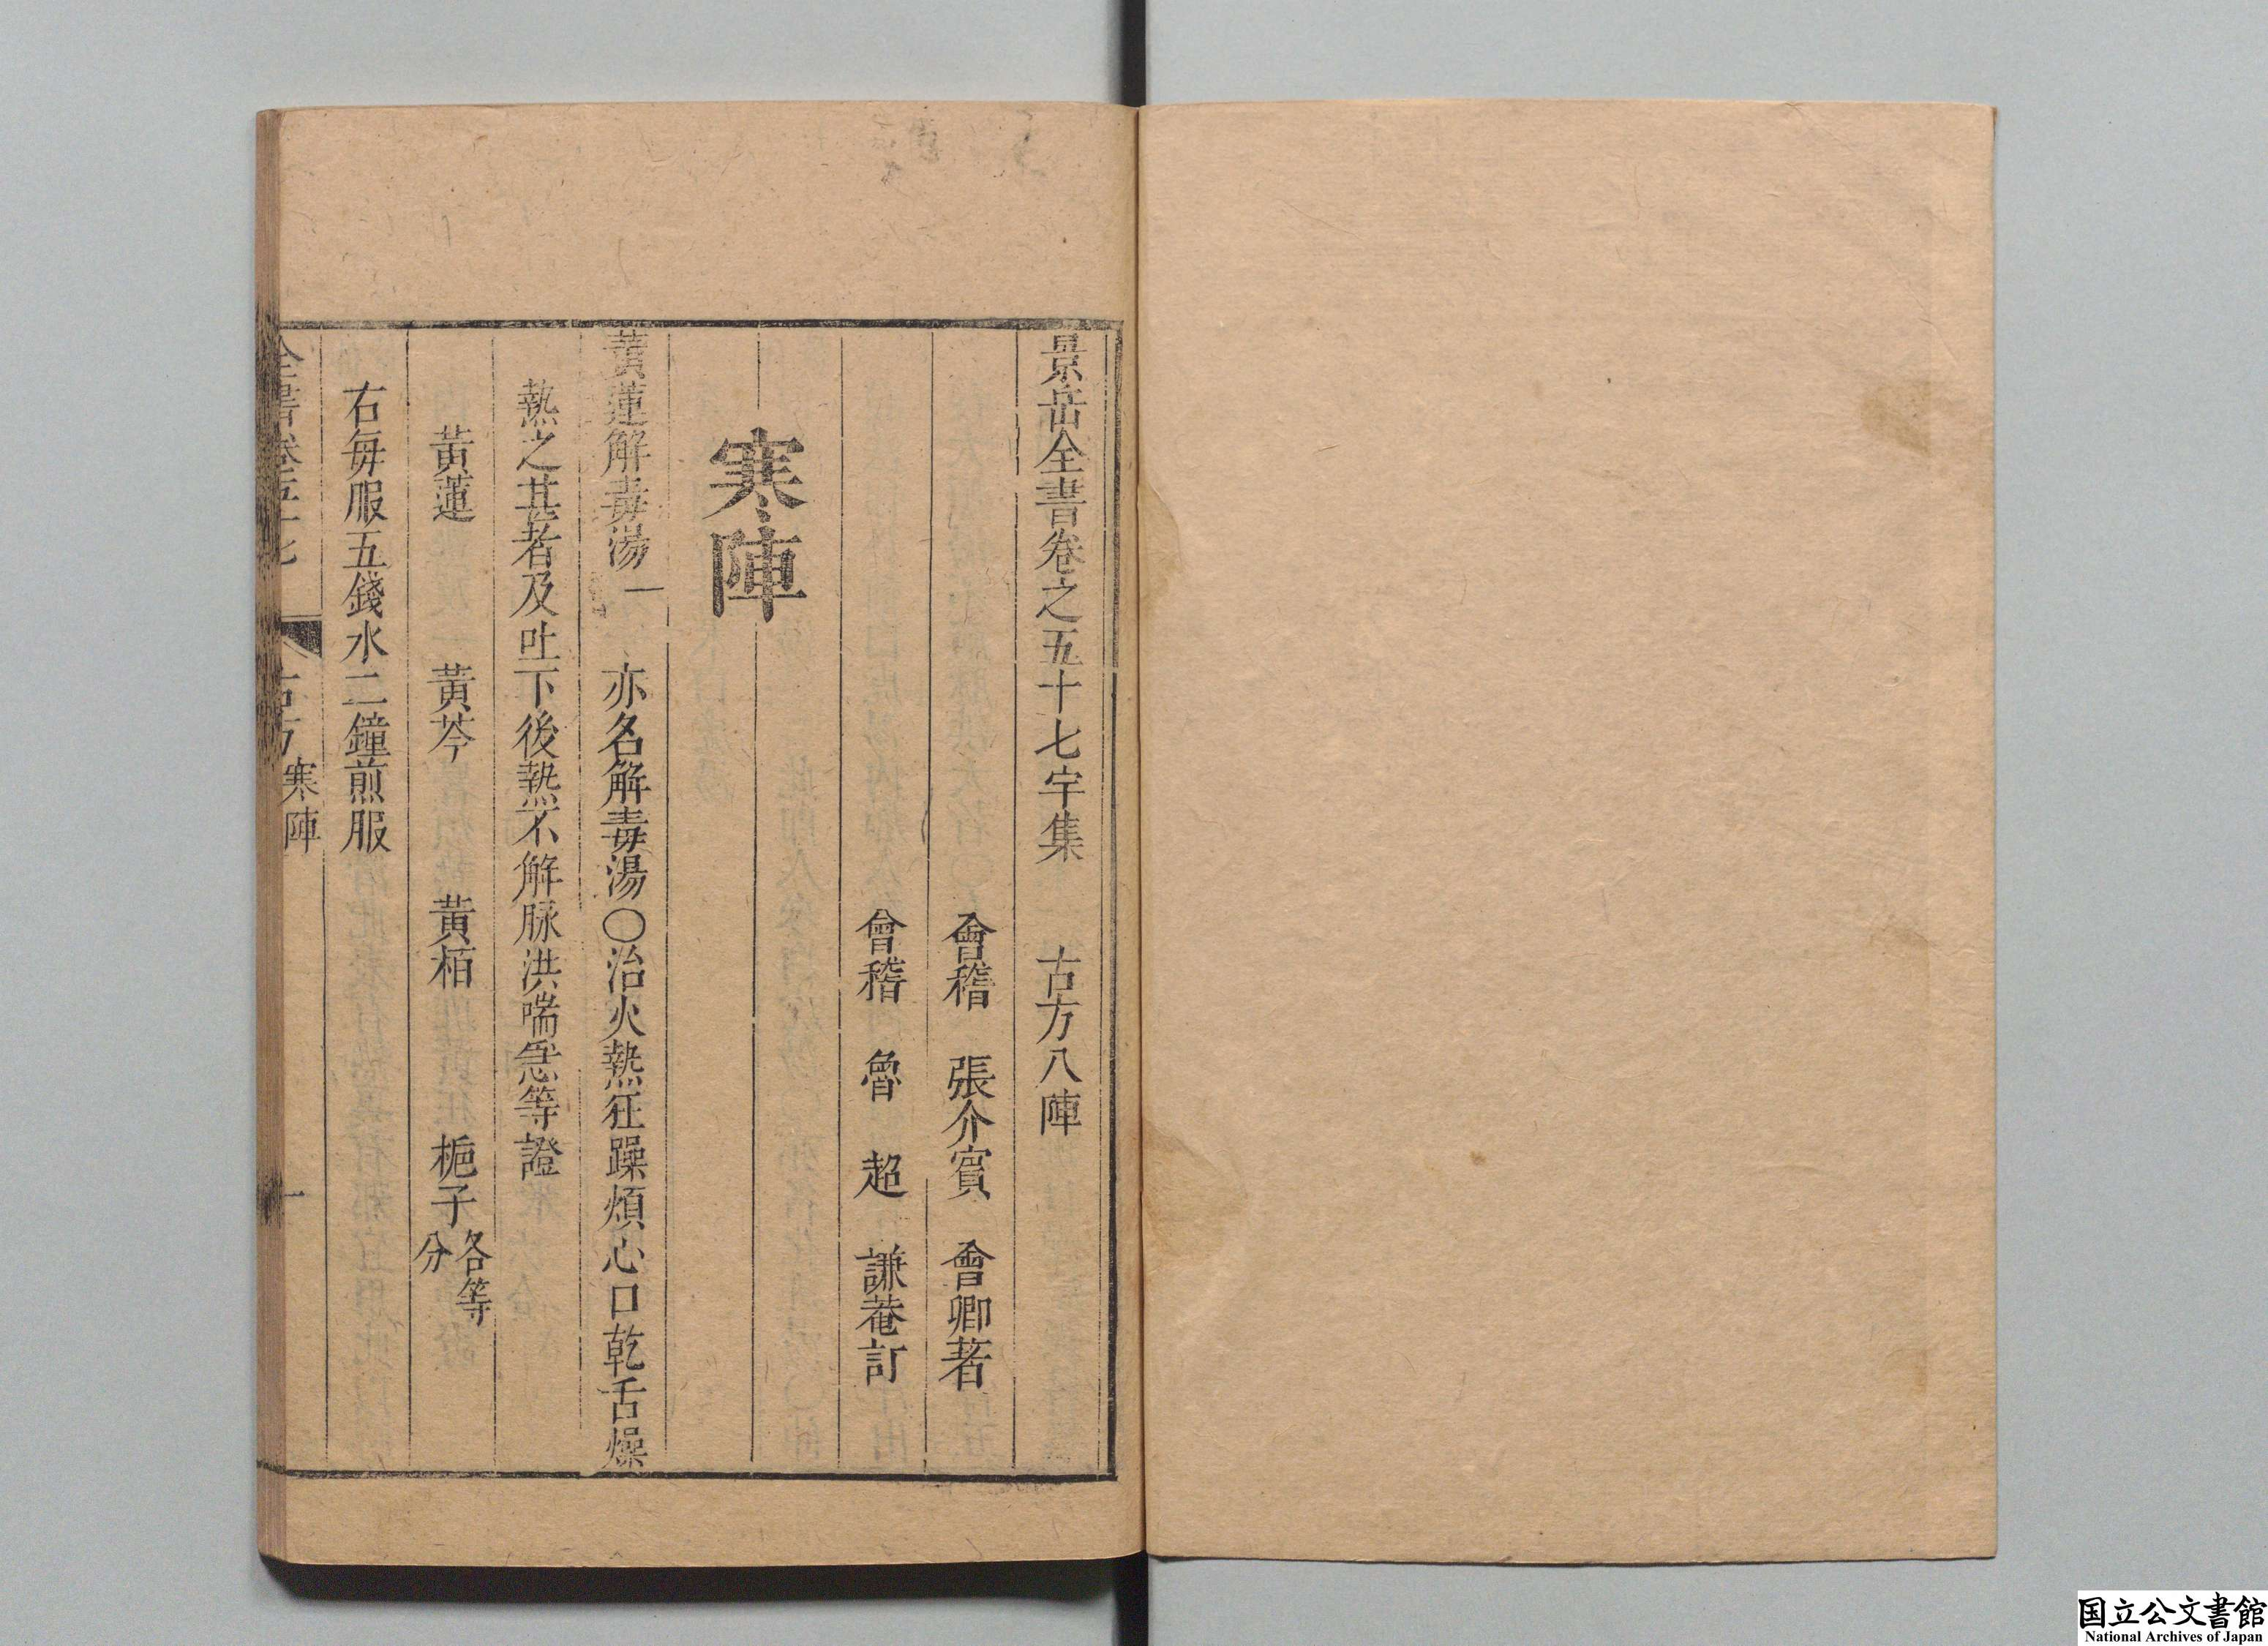 景岳全書卷之五十七宇集　古方八陣
會稽　張介賓　會卿著
會稽　魯　超　謙菴訂
寒陣
黃蓮解毒湯一　亦名解毒湯〇治火熱狂躁煩心口乾舌燥
熱之甚者及吐下後熱不解脉洪喘急等證
黃蓮　黃芩　黃栢　梔子各等分
右每服五錢水二鐘煎服
全書卷五十七　古方寒陣　一
国立公文書館
National Archives of Japan